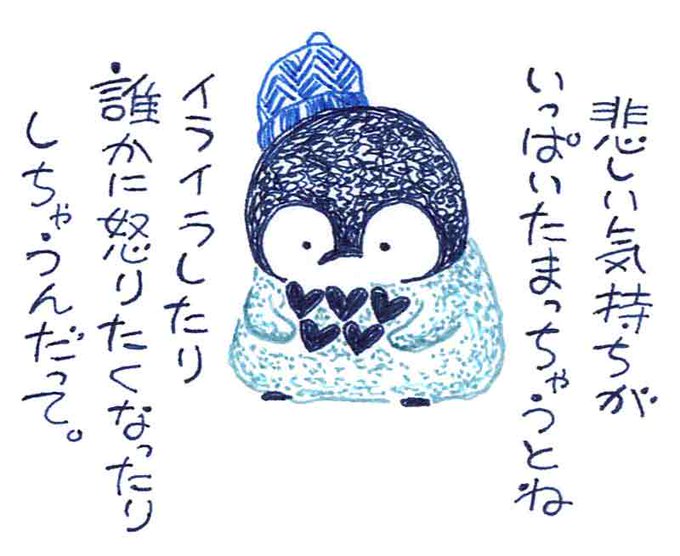 悲しい気持ちが
いっぱいたまっちゃうとね
イライラしたり
誰かに怒りたくなったり
しちゃうんだって。